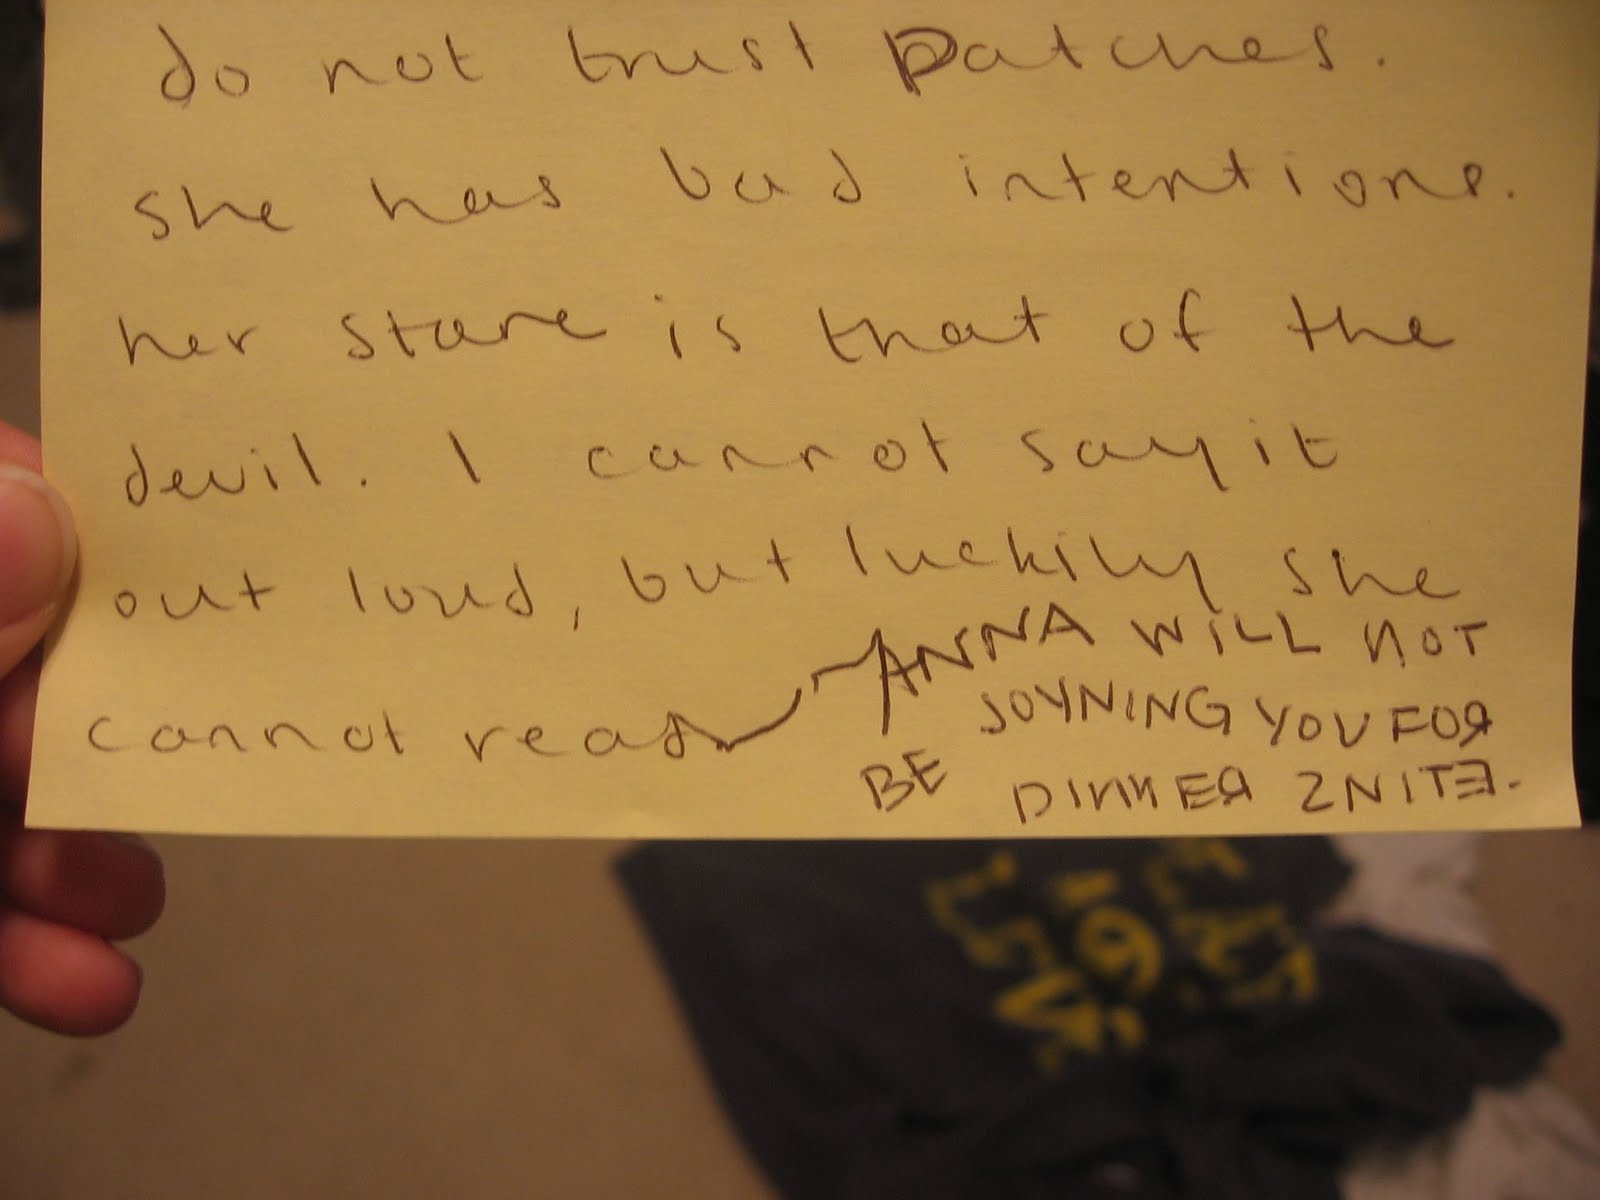 do not trust patches.
she has bad intentions.
her stare is that of the
devil. I cannot say it
out loud, but luckily she
cannot read
ANNA WILL NOT
BE JOYNING YOU FOR
DINNER 2NITE.